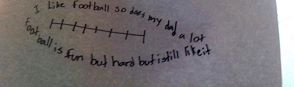 I Like football so does my dad a lot
football is fun but hard but i still like it